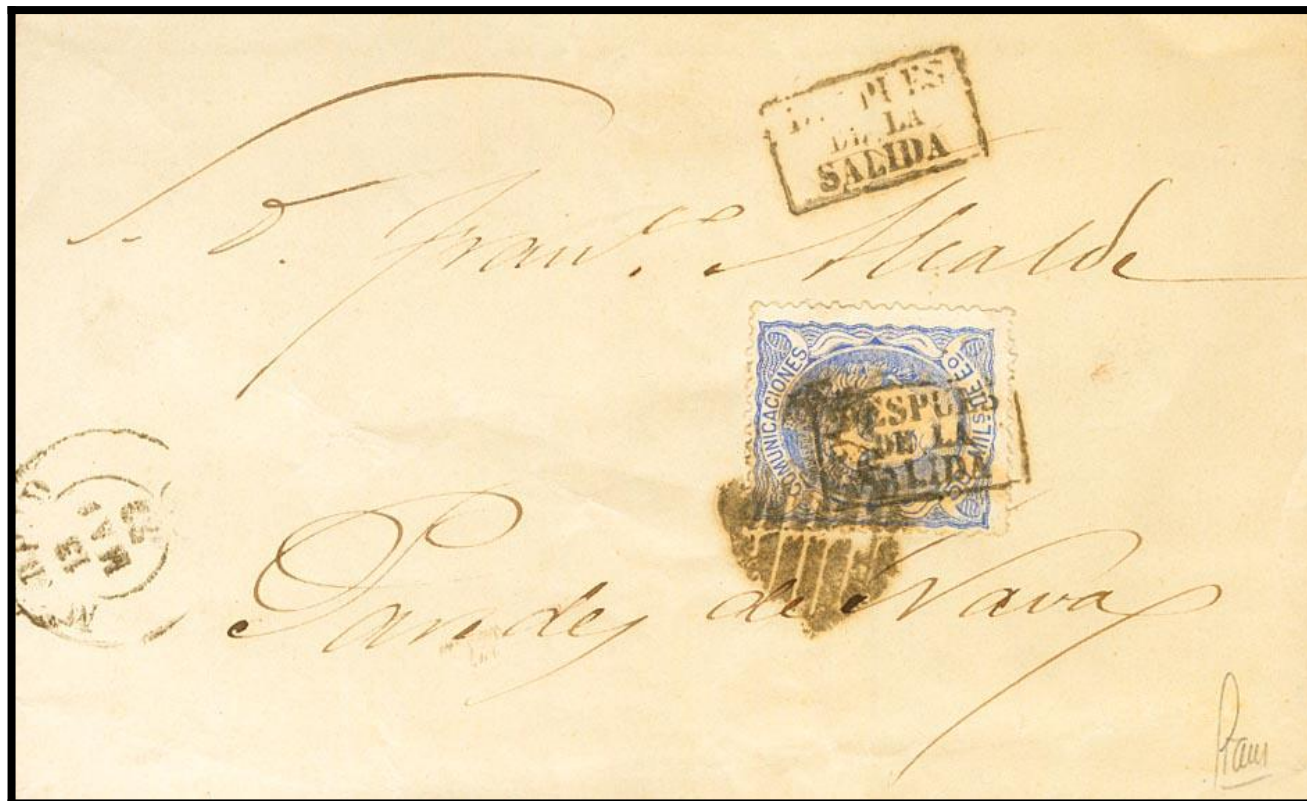 DESPUES
DE LA
SALIDA
S. D. Franco. Alcalde
COMUNICACIONES
50 MILS. DE Eo.
DESPUES
DE LA
SALIDA
Paredes de Nava
13